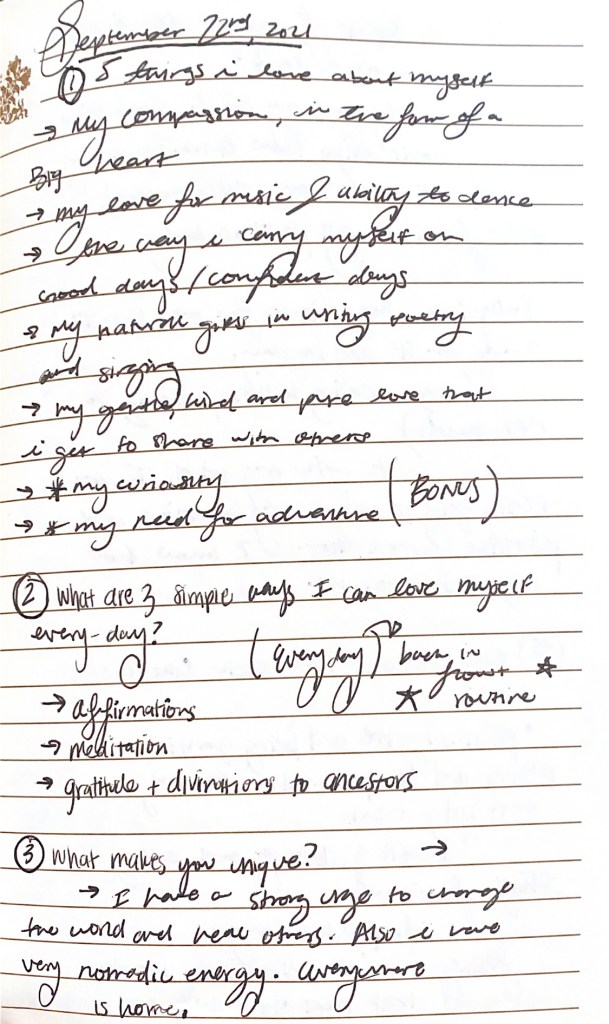 September 22nd, 2021
① 5 things i love about myself
→ My compassion, in the form of a
Big heart
→ my love for music & ability to dance
→ the way i carry myself on
good days/confident days
→ My natural gifts in writing poetry
and singing
→ my gentle, kind and pure love that
i get to share with others
→ * my curiosity
→ * my need for adventure (BONUS)
② What are 3 simple ways I can love myself
every-day? (Everyday) back in
★ ★
→ affirmations routine
→ meditation
→ gratitude + divinations to ancestors
③ What makes you unique? →
→ I have a strong urge to change
the world and heal others. Also i have
very nomadic energy. Everywhere
is home.